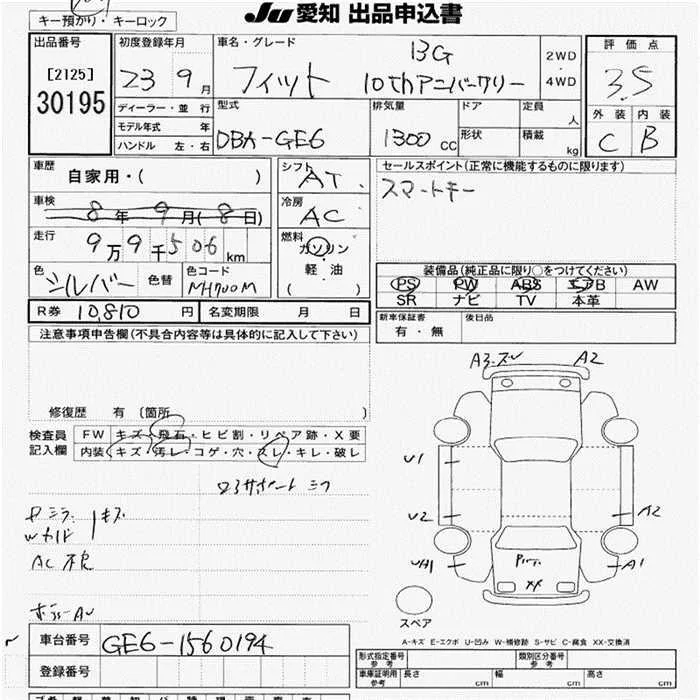 JU 愛知 出品申込書
キー預かり・キーロック
出品番号
[2125]
30195
初度登録年月
23 9月
ディーラー・並 行
モデル年式 年
ハンドル 左・右
車名・グレード
13G
フィット 10thアニバーサリー
2WD
4WD
型式
DBA-GE6
排気量
1300 CC
ドア
形状
定員
人
積載
kg
評価点
3.5
外装 内装
C B
車歴
自家用・( )
車検
8年 9月(8日)
走行
9万9千506km
色
シルバー
色替
色コード
NH700M
シフト
AT
冷房
AC
燃料
ガソリン
軽・油
( )
セールスポイント(正常に機能するものに限ります)
スマートキー
装備品(純正品に限り○をつけてください)
PS PW ABS エアB AW
SR ナビ TV 本革
R券 10,810 円 名変期限 月 日
新車保証書
有・無
後日品
注意事項申告欄(不具合内容等は具体的に記入して下さい)
修復歴 有〔箇所 〕
検査員
記入欄
FW キズ・飛石・ヒビ割・リペア跡・X要
内装 キズ・汚レ・コゲ・穴・スレ・キレ・破レ
キズ
AC 不良
A3 A2
U1
U2 A2
UA1 A1
XX
スペア
A-キズ E-エクボ U-凹み W-補修跡 S-サビ C-腐食 XX-交換済
車台番号 GE6-1560194
登録番号
形式指定番号
参考
類別区分番号
参考
車庫証明用
参考
長さ cm 幅 cm 高さ cm